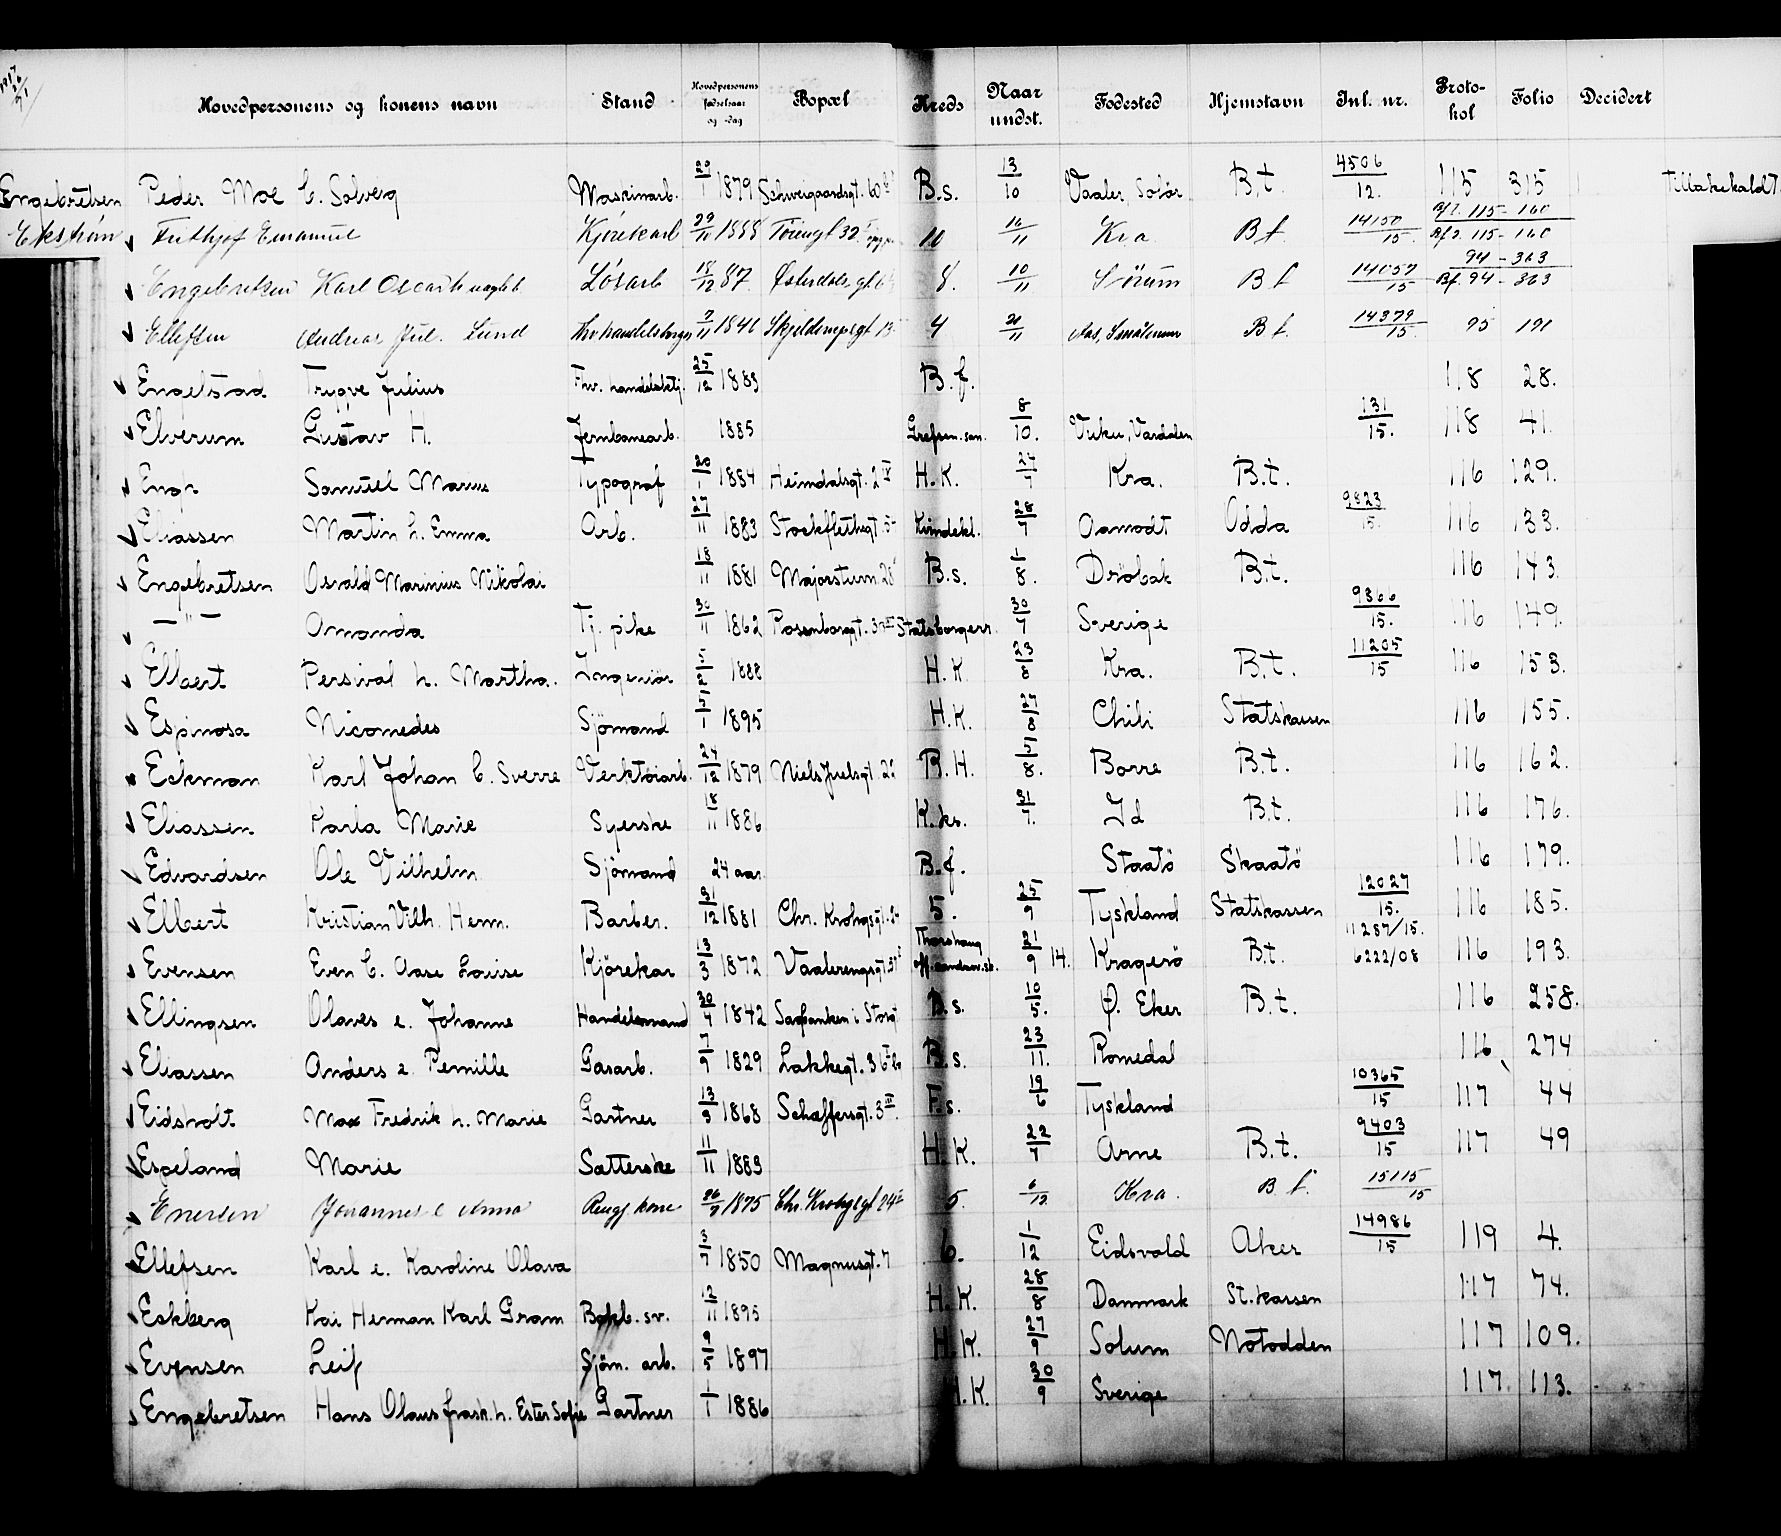 1917
26/9 1
Hovedpersonens og konens navn Stand Hovedpersonens fødselsaar og -dag Bopæl Kreds Naar undst. Fødested Hjemstavn Inl. nr. Proto-kol Folio Decidert
Engebretsen Peder Moe E. Solveig Maskinarb. 1879 Schweigaardsgt. 60 B.s. 13/10 Vaaler Solør B.t. 4506/12. 115 315 Tilbakekaldt
Ekström Frithjof Emanuel Kjörekarl 29/10 1888 Töiengt 32 10 16/11 Kra B f. 14150/15. Bf 2. 115-160
Bf 2. 115-160
Engebretsen Karl Oscar Lösarb 18/12 87 Østerdalsgt 8. 10/11 Sörum B f 14057/15 94-363
Bf. 94-363
Ellefsen Andreas Jul. Lund 7/11 1846 4 21/11 Aas, B f. 14379/15. 95 191
Engelstad Trygve Julius Fhv. handelsbetj. 25/12 1883 B.f. 118 28.
Elverum Gustav H. Jernbanearb. 1885 Grefsen.san. 8/10. Vuku, Værdalen 131/15. 118 41.
Samuel Marius Typograf 1884 Heimdalsgt. 2 IV H.K. 24/7 Kra. B.t. 116 129.
Eliassen Martin h. Emma Arb. 27/11 1883 Stockflethsgt. Kvindekl. 28/7 Aamodt Odda 9823/15. 116 133.
Engebretsen Osvald Marinius Nikolai 18/11 1881 Majorstuv. 28 B.s. 1/8. Dröbak B.t. 116 143.
— " — Amanda Tj. pike 30/11 1862 Rosenborggt. Statsborgerr. 30/7 Sverige 9866/15. 116 149.
Elbert Persival h. Martha. Ingeniör 5/2 1888 H.K. 23/8 Kra. B.t. 11205/15 116 153.
Espinosa Nicomedes Sjömand 5/1 1895 H.K. 27/8 Chili Statskassen 116 155.
Eckman Karl Johan E. Sverre Verktöiarb. 24/12 1879 Niels Juelsgt. R.H. 5/8. Borre B.t. 116 162.
Eliassen Karla Marie Syerske 18/11 1886 K.ks. 31/7. Id B.t. 116 176.
Edvardsen Ole Vilhelm Sjömand 24 aar B.f. Staatö Skaatö 116 179.
Elbert Kristian Vilh. Herm. Barber. 31/12 1881 Chr. Krohgsgt. 5. 25/9 Tyskland Statskassen 12027/15. 116 185.
Evensen Even E. Aase Louise Kjörekar 13/3 1872 Vaalerengsgt. Thorshaug 21/9 14. Kragerö B.t. 11287/15. 6222/08 116 193.
Ellingsen Olaves e. Johanne Handelsmand 30/4 1842 B.s. 10/5. Ø. Eker B.t. 116 258.
Eliassen Anders e. Pernille Gasarb. 7/9 1829 Lakkegt. B.s. 23/11. Romedal 116 274
Eidsholt Max Fredrik h. Marie Gartner 13/9 1868 Schæffersgt. 3 IV. F.s. 19/6 Tyskland 10365/15 117 44
Espeland Marie Sætterske 11/11 1883 H.K. 22/7 Arne B.t. 9403/15 117 49
Enersen Johannes e Anna Rengj. kone 26/7 1875 Chr. Krohgsgt 24 5. 6/12 Kra. B f. 15115/15
Ellefsen Karl e. Karoline Olava 3/7 1850 Magnusgt. 7 6. 1/12 Eidsvold Aker 14986/15 119 4.
Eskberg Kai Herman Karl Gram Bokb. sv. 12/11 1895 H.K. 28/8 Danmark St.kassen 117 74.
Evensen Leif Sjöm. arb. 9/5 1897 H.K. 27/9 Solum Notodden 117 109.
Engebretsen Hans Olaus frask. h. Ester Sofie Gartner 1/1 1886 H.K. 30/9 Sverige 117 113.